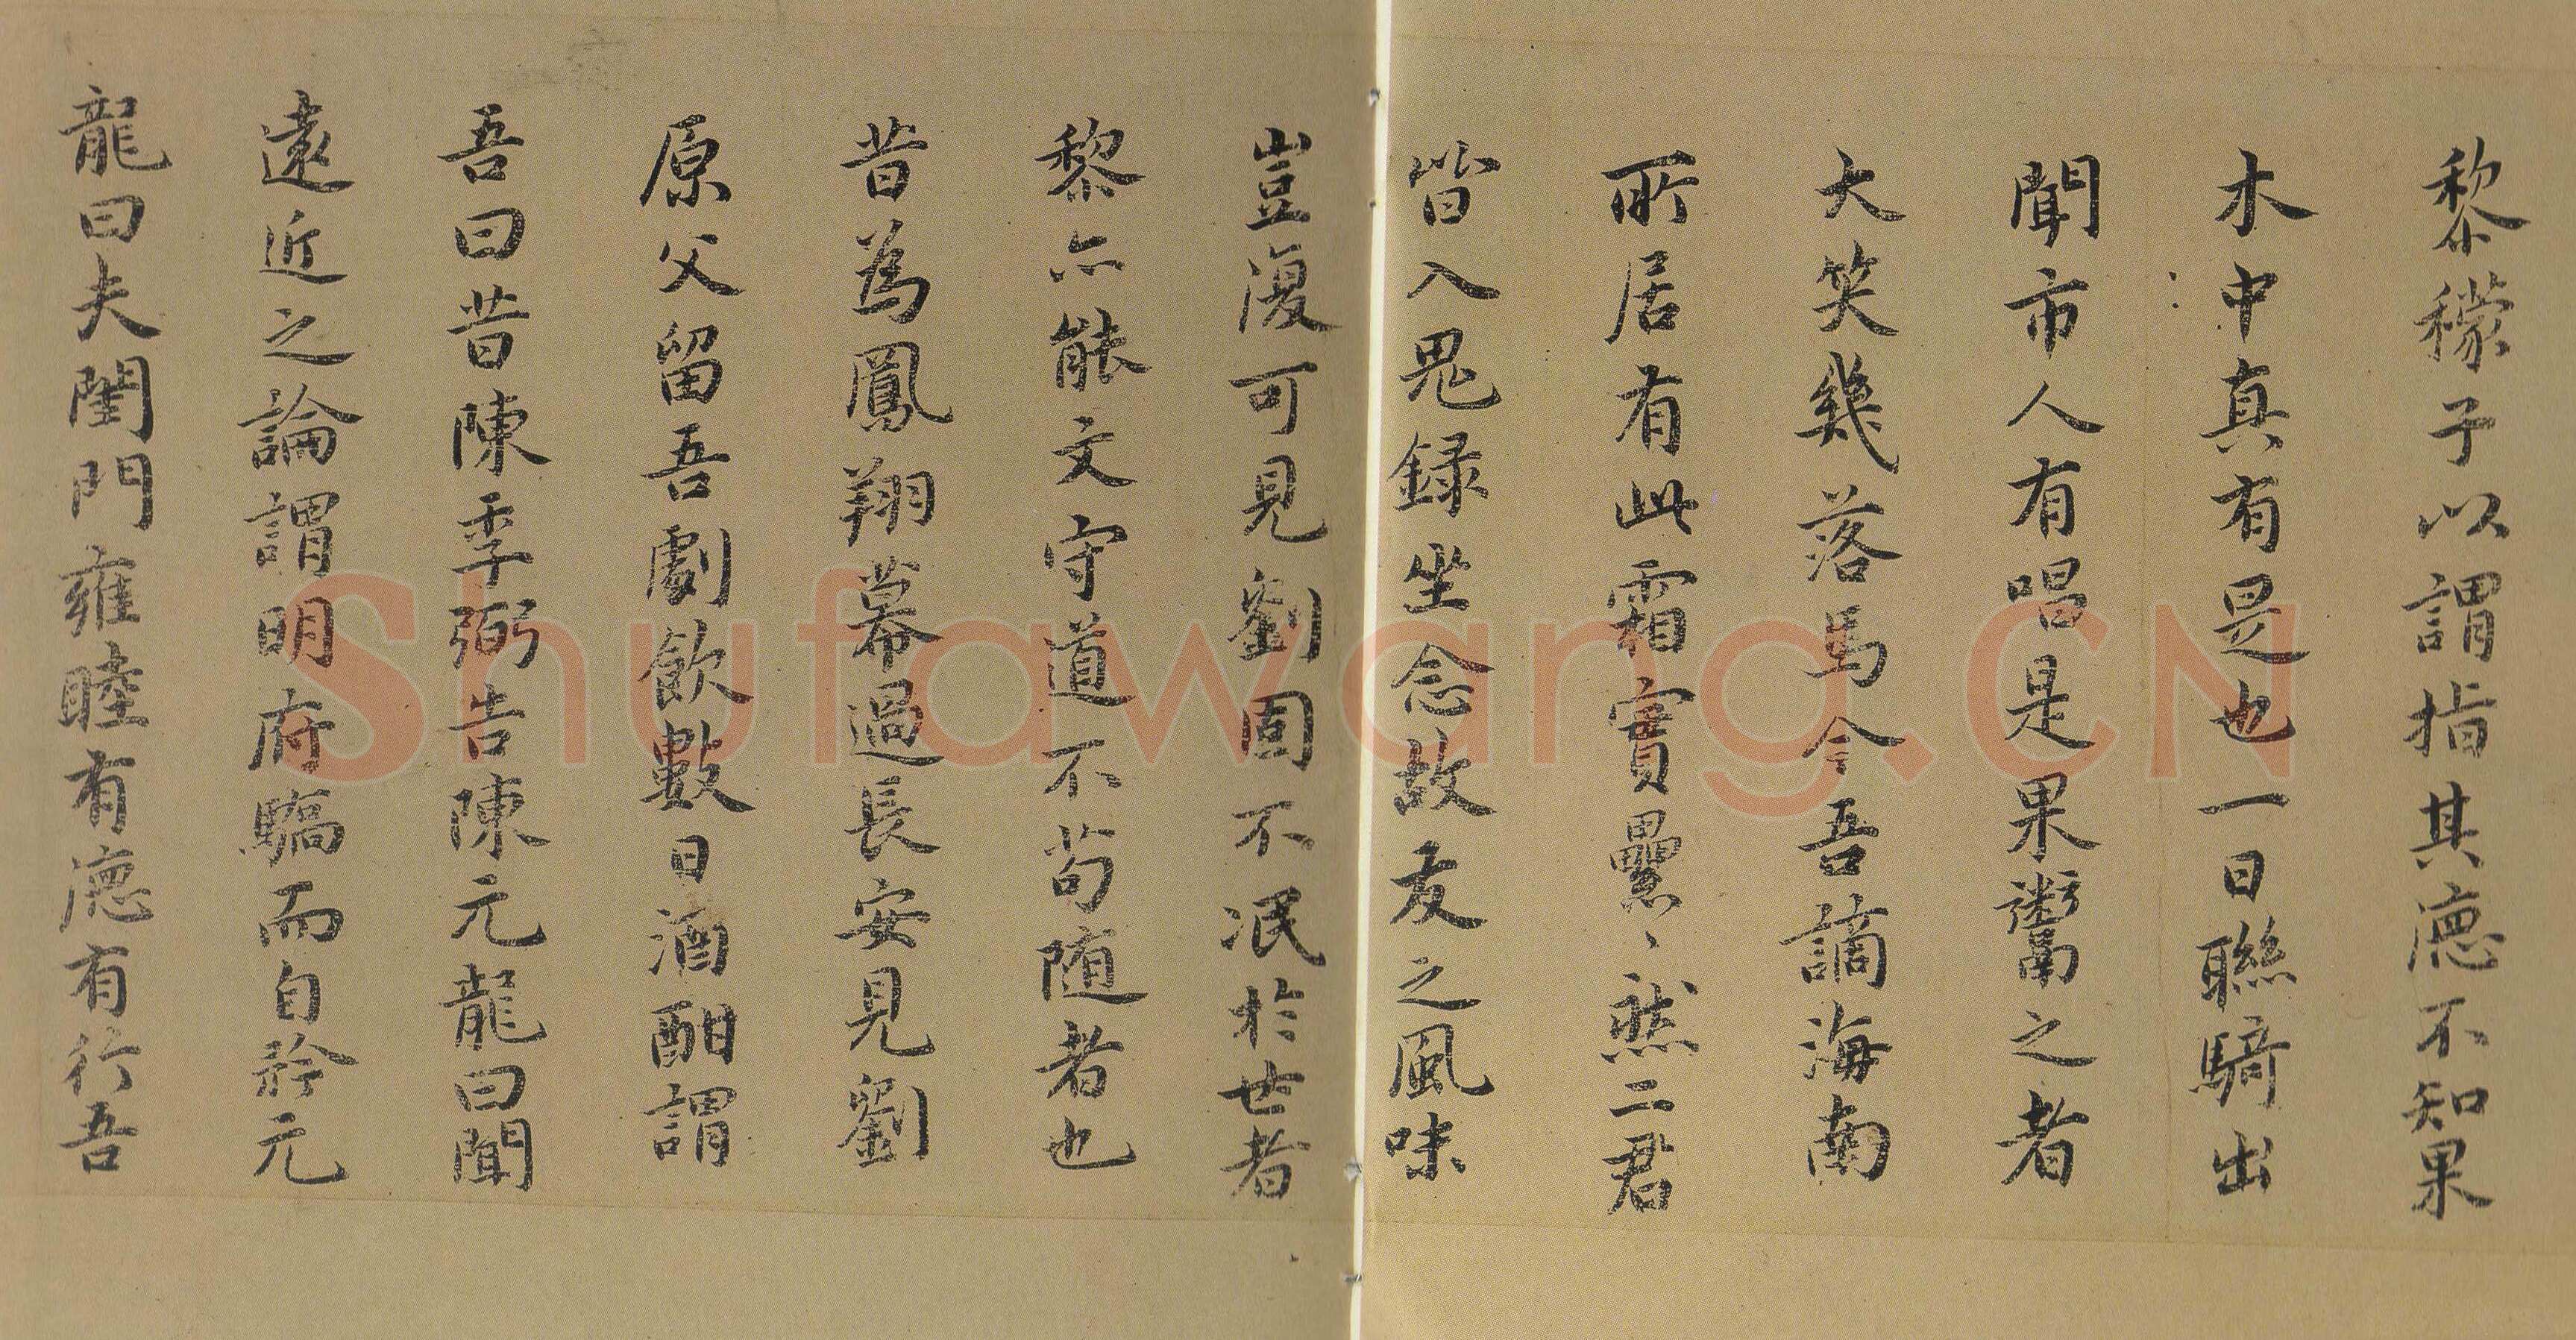 黎檬子以謂指其德不知果
木中真有是也一日聯騎出
聞市人有唱是果鬻之者
大笑幾落馬今吾謫海南
所居有此霜實纍〻然二君
皆入鬼録坐念故友之風味
豈復可見劉固不泯於世者
黎亦能文守道不苟随者也
昔為鳳翔幕過長安見劉
原父留吾劇飲數日酒酣謂
吾曰昔陳季弼告陳元龍曰聞
遠近之論謂明府驕而自矜元
龍曰夫閨門雍睦有德有行吾
Shufawang.CN